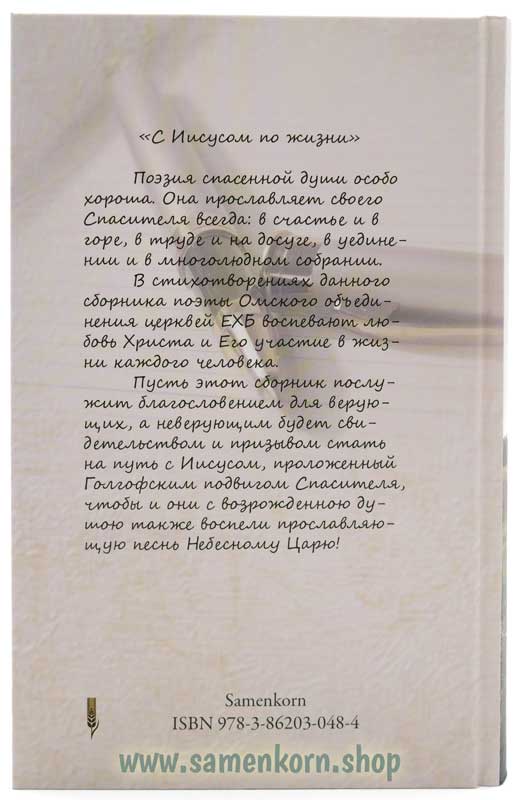 «С Иисусом по жизни»
Поэзия спасенной души особо
хороша. Она прославляет своего
Спасителя всегда: в счастье и в
горе, в труде и на досуге, в уедине-
нии и в многолюдном собрании.
В стихотворениях данного
сборника поэты Омского объеди-
нения церквей ЕХБ воспевают лю-
бовь Христа и Его участие в жиз-
ни каждого человека.
Пусть этот сборник послу-
жит благословением для верую-
щих, а неверующим будет сви-
детельством и призывом стать
на путь с Иисусом, проложенный
Голгофским подвигом Спасителя,
чтобы и они с возрожденною ду-
шою также воспели прославляю-
щую песнь Небесному Царю!
Samenkorn
ISBN 978-3-86203-048-4
www.samenkorn.shop